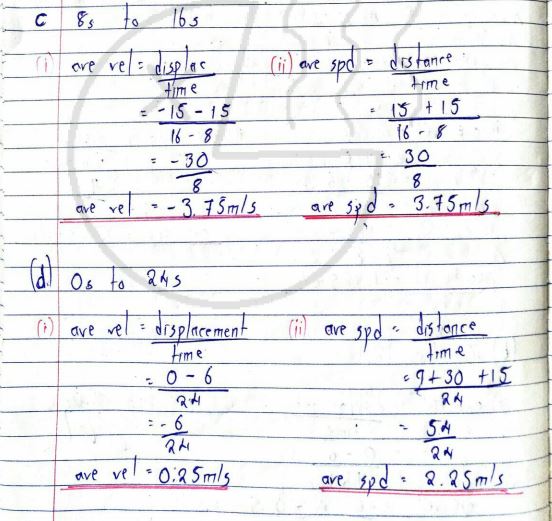 c 8s to 16s
(i) ave vel = displac / time
= -15 - 15 / 16 - 8
= -30 / 8
ave vel = -3.75m/s
(ii) ave spd = distance / time
= 15 + 15 / 16 - 8
= 30 / 8
ave spd = 3.75m/s
(d) 0s to 24s
(i) ave vel = displacement / time
= 0 - 6 / 24
= -6 / 24
ave vel = 0.25m/s
(ii) ave spd = distance / time
= 9 + 30 + 15 / 24
= 54 / 24
ave spd = 2.25m/s